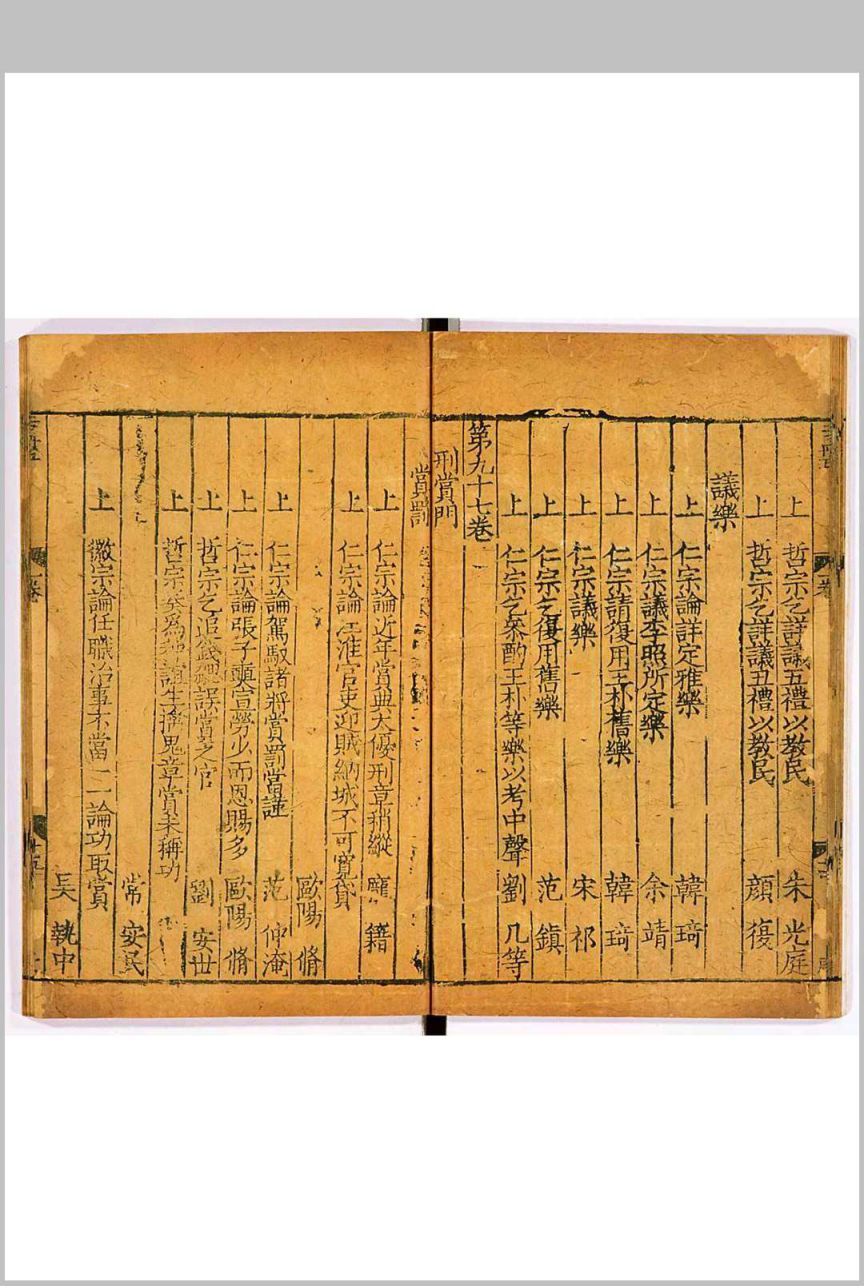 上 哲宗乞詳議五禮以教民 朱光庭
上 哲宗乞詳議五禮以教民 顔復
議樂
上 仁宗論詳定雅樂 韓琦
上 仁宗議李照所定樂 余靖
上 仁宗請復用王朴舊樂 韓琦
上 仁宗議樂 宋祁
上 仁宗乞復用舊樂 范鎮
上 仁宗乞叅酌王朴等樂以考中聲 劉几等
第九十七卷
刑賞門
賞罰
上 仁宗論近年賞典太優刑章稍縱 龐籍
上 仁宗論江淮官吏迎賊納城不可寛貸
歐陽脩
上 仁宗論駕馭諸將賞罰當謹 范仲淹
上 仁宗論張子奭宣勞少而恩賜多 歐陽脩
上 哲宗乞追後誤賞之官 劉安世
上 哲宗 爲种誼生擒鬼章賞未稱功
常安民
上 徽宗論任職治事不當一一論功取賞
吴執中